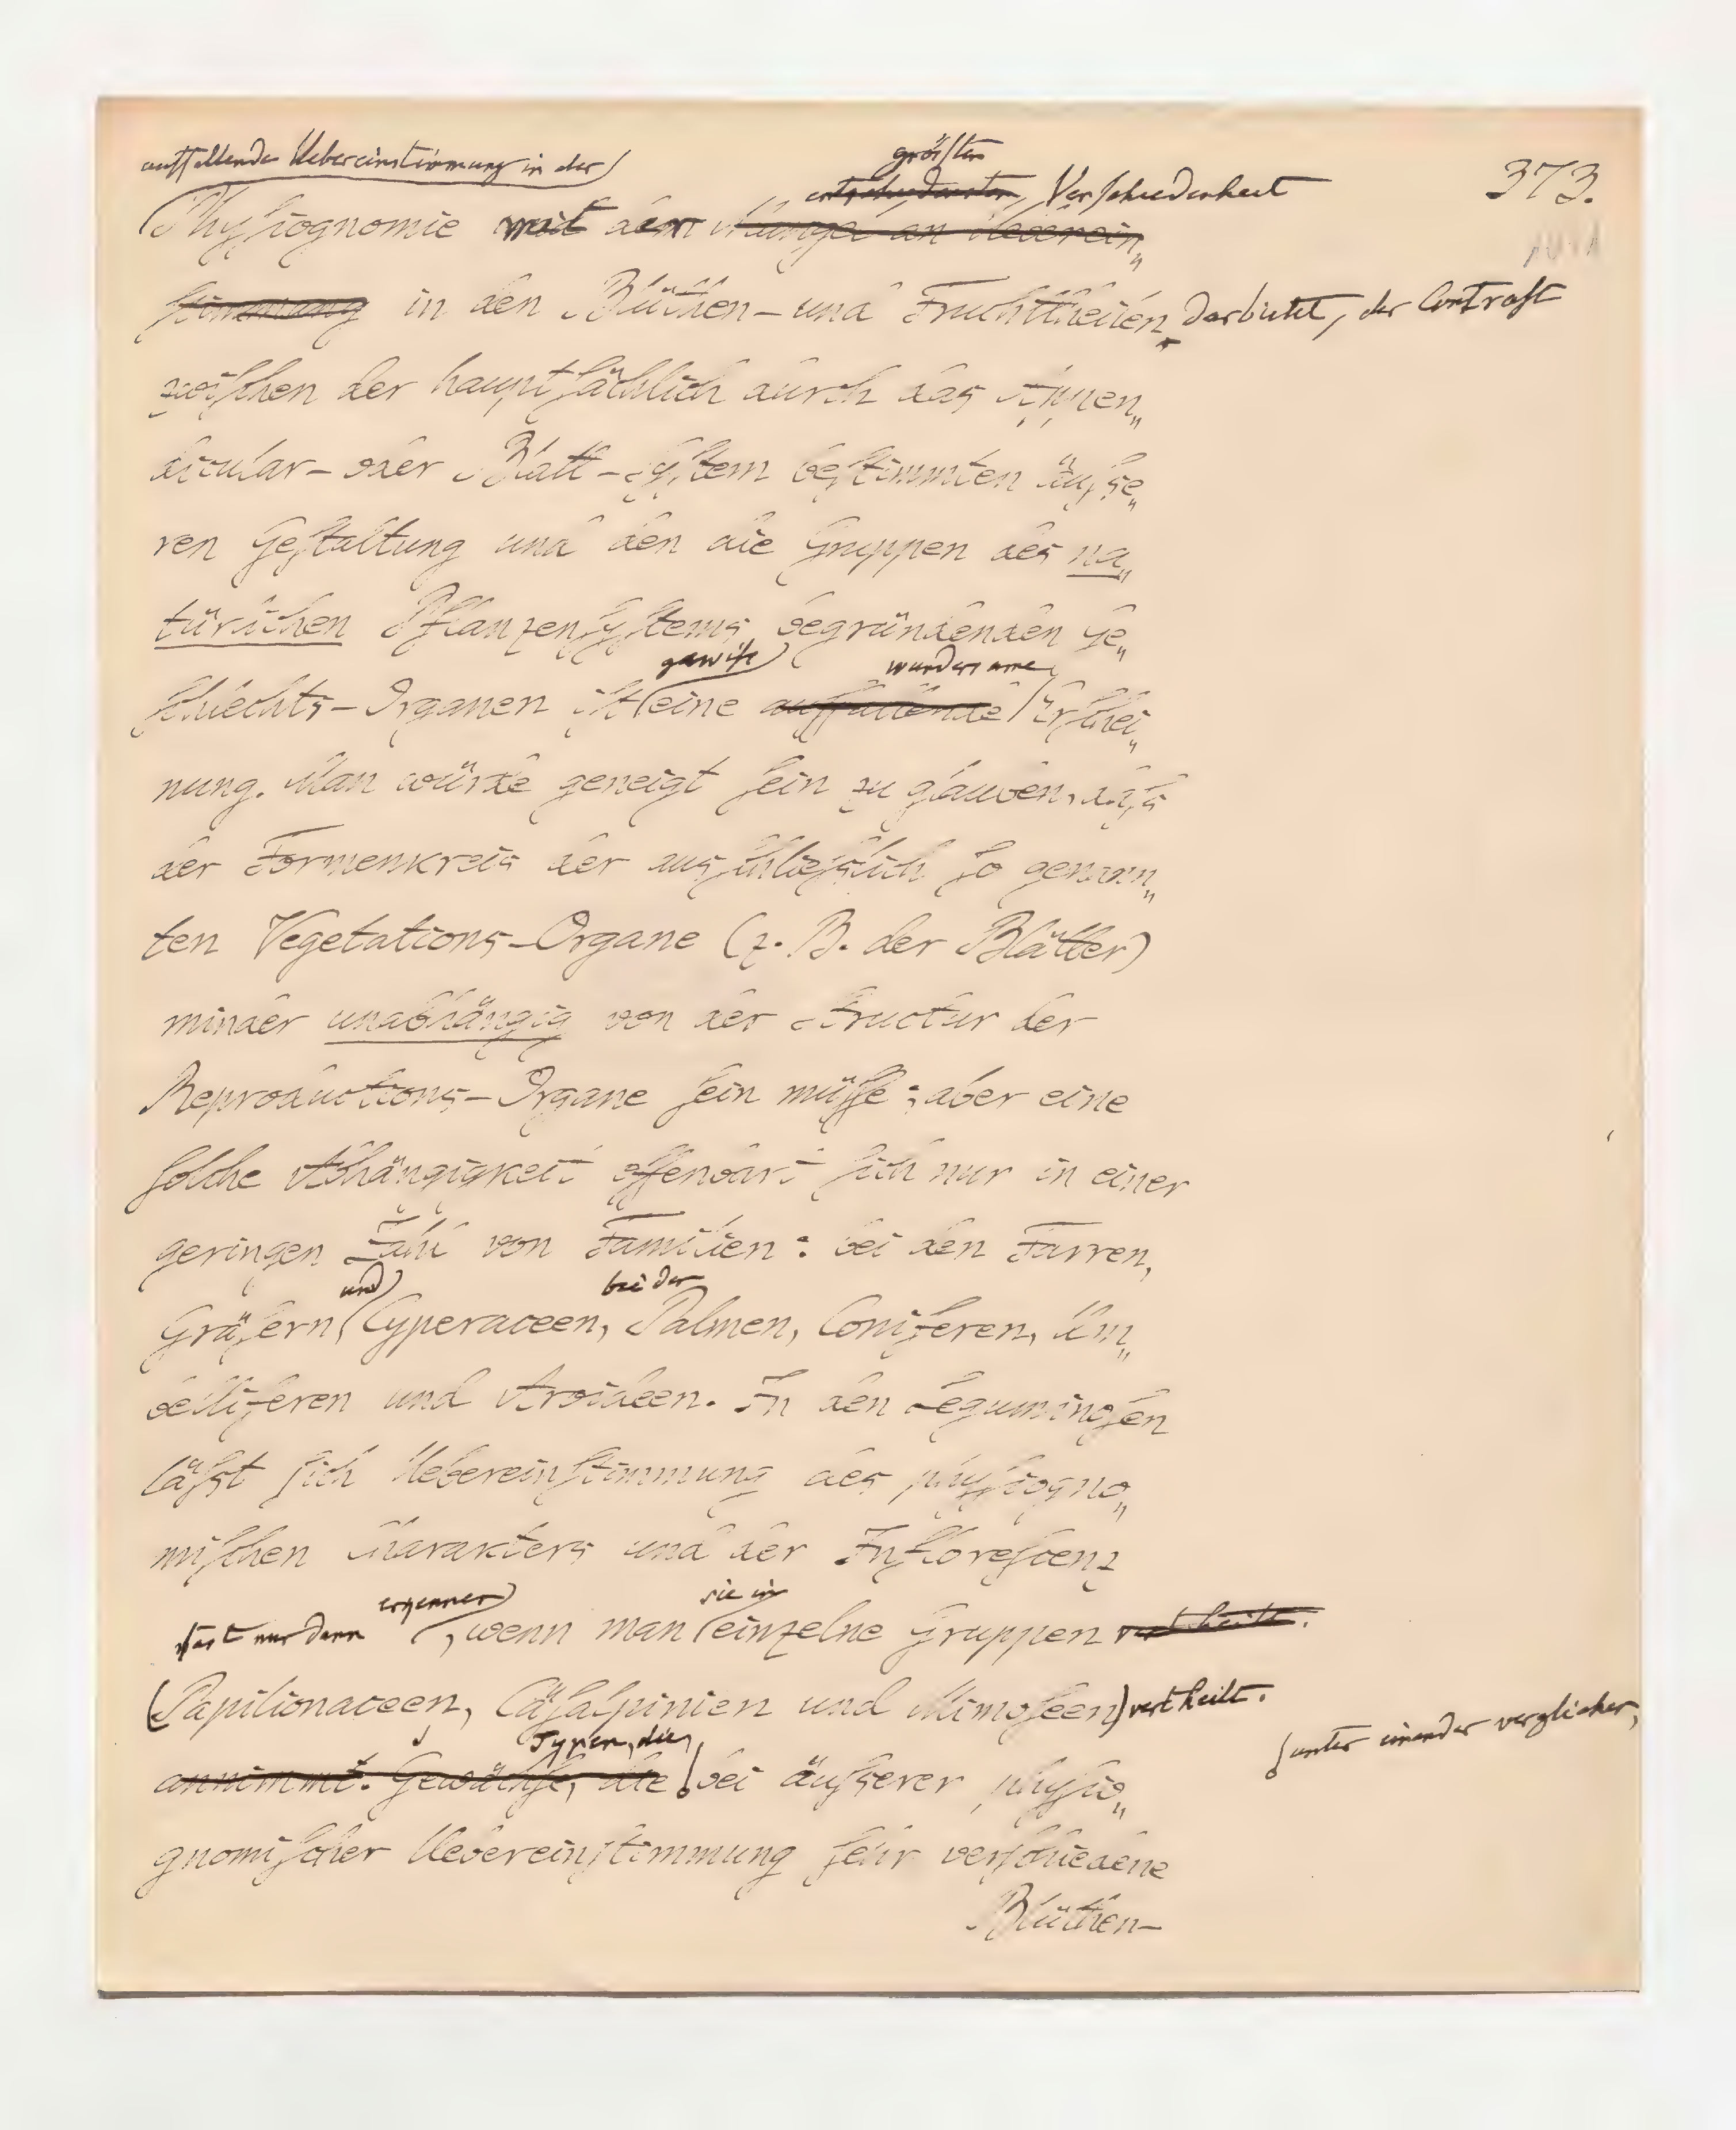 373.
auffallende Uebereinstimmung in der
größten
entschiedensten Verschiedenheit
Physiognomie mit der Mangel an Ueberein„
stimmung in den Blüthen- und Fruchttheilen darbietet, der Contrast
zwischen der hauptsächlich durch das Appen„
dicular- oder Blatt-System bestimmten äuße„
ren Gestaltung und den die Gruppen des na„
türlichen Pflanzensystems begründenden Ge„
gewiß wundersame
schlechts-Organen ist eine auffallende Erschei„
nung. Man würde geneigt sein zu glauben, daß
der Formenkreis der ausschließlich so genann„
ten Vegetations-Organe (z. B. der Blätter)
minder unabhängig von der Structur der
Reproductions-Organe sein müsse; aber eine
solche Abhängigkeit offenbart sich nur in einer
geringen Zahl von Familien: bei den Farren,
und bei den
Gräsern, Cyperaceen, Palmen, Coniferen, Um„
belliferen und Aroideen. In den Leguminosen
läßt sich Uebereinstimmung des physiogno„
mischen Charakters und der Inflorescenz
erkennen sie in
fast nur dann , wenn man einzelne Gruppen vertheilt.
(Papilionaceen, Cäsalpinien und Mimoseen) vertheilt.
Typen, die, unter einander verglichen,
annimmt. Gewächse, die bei äußerer physio„
gnomischer Uebereinstimmung sehr verschiedene
Blüthen-